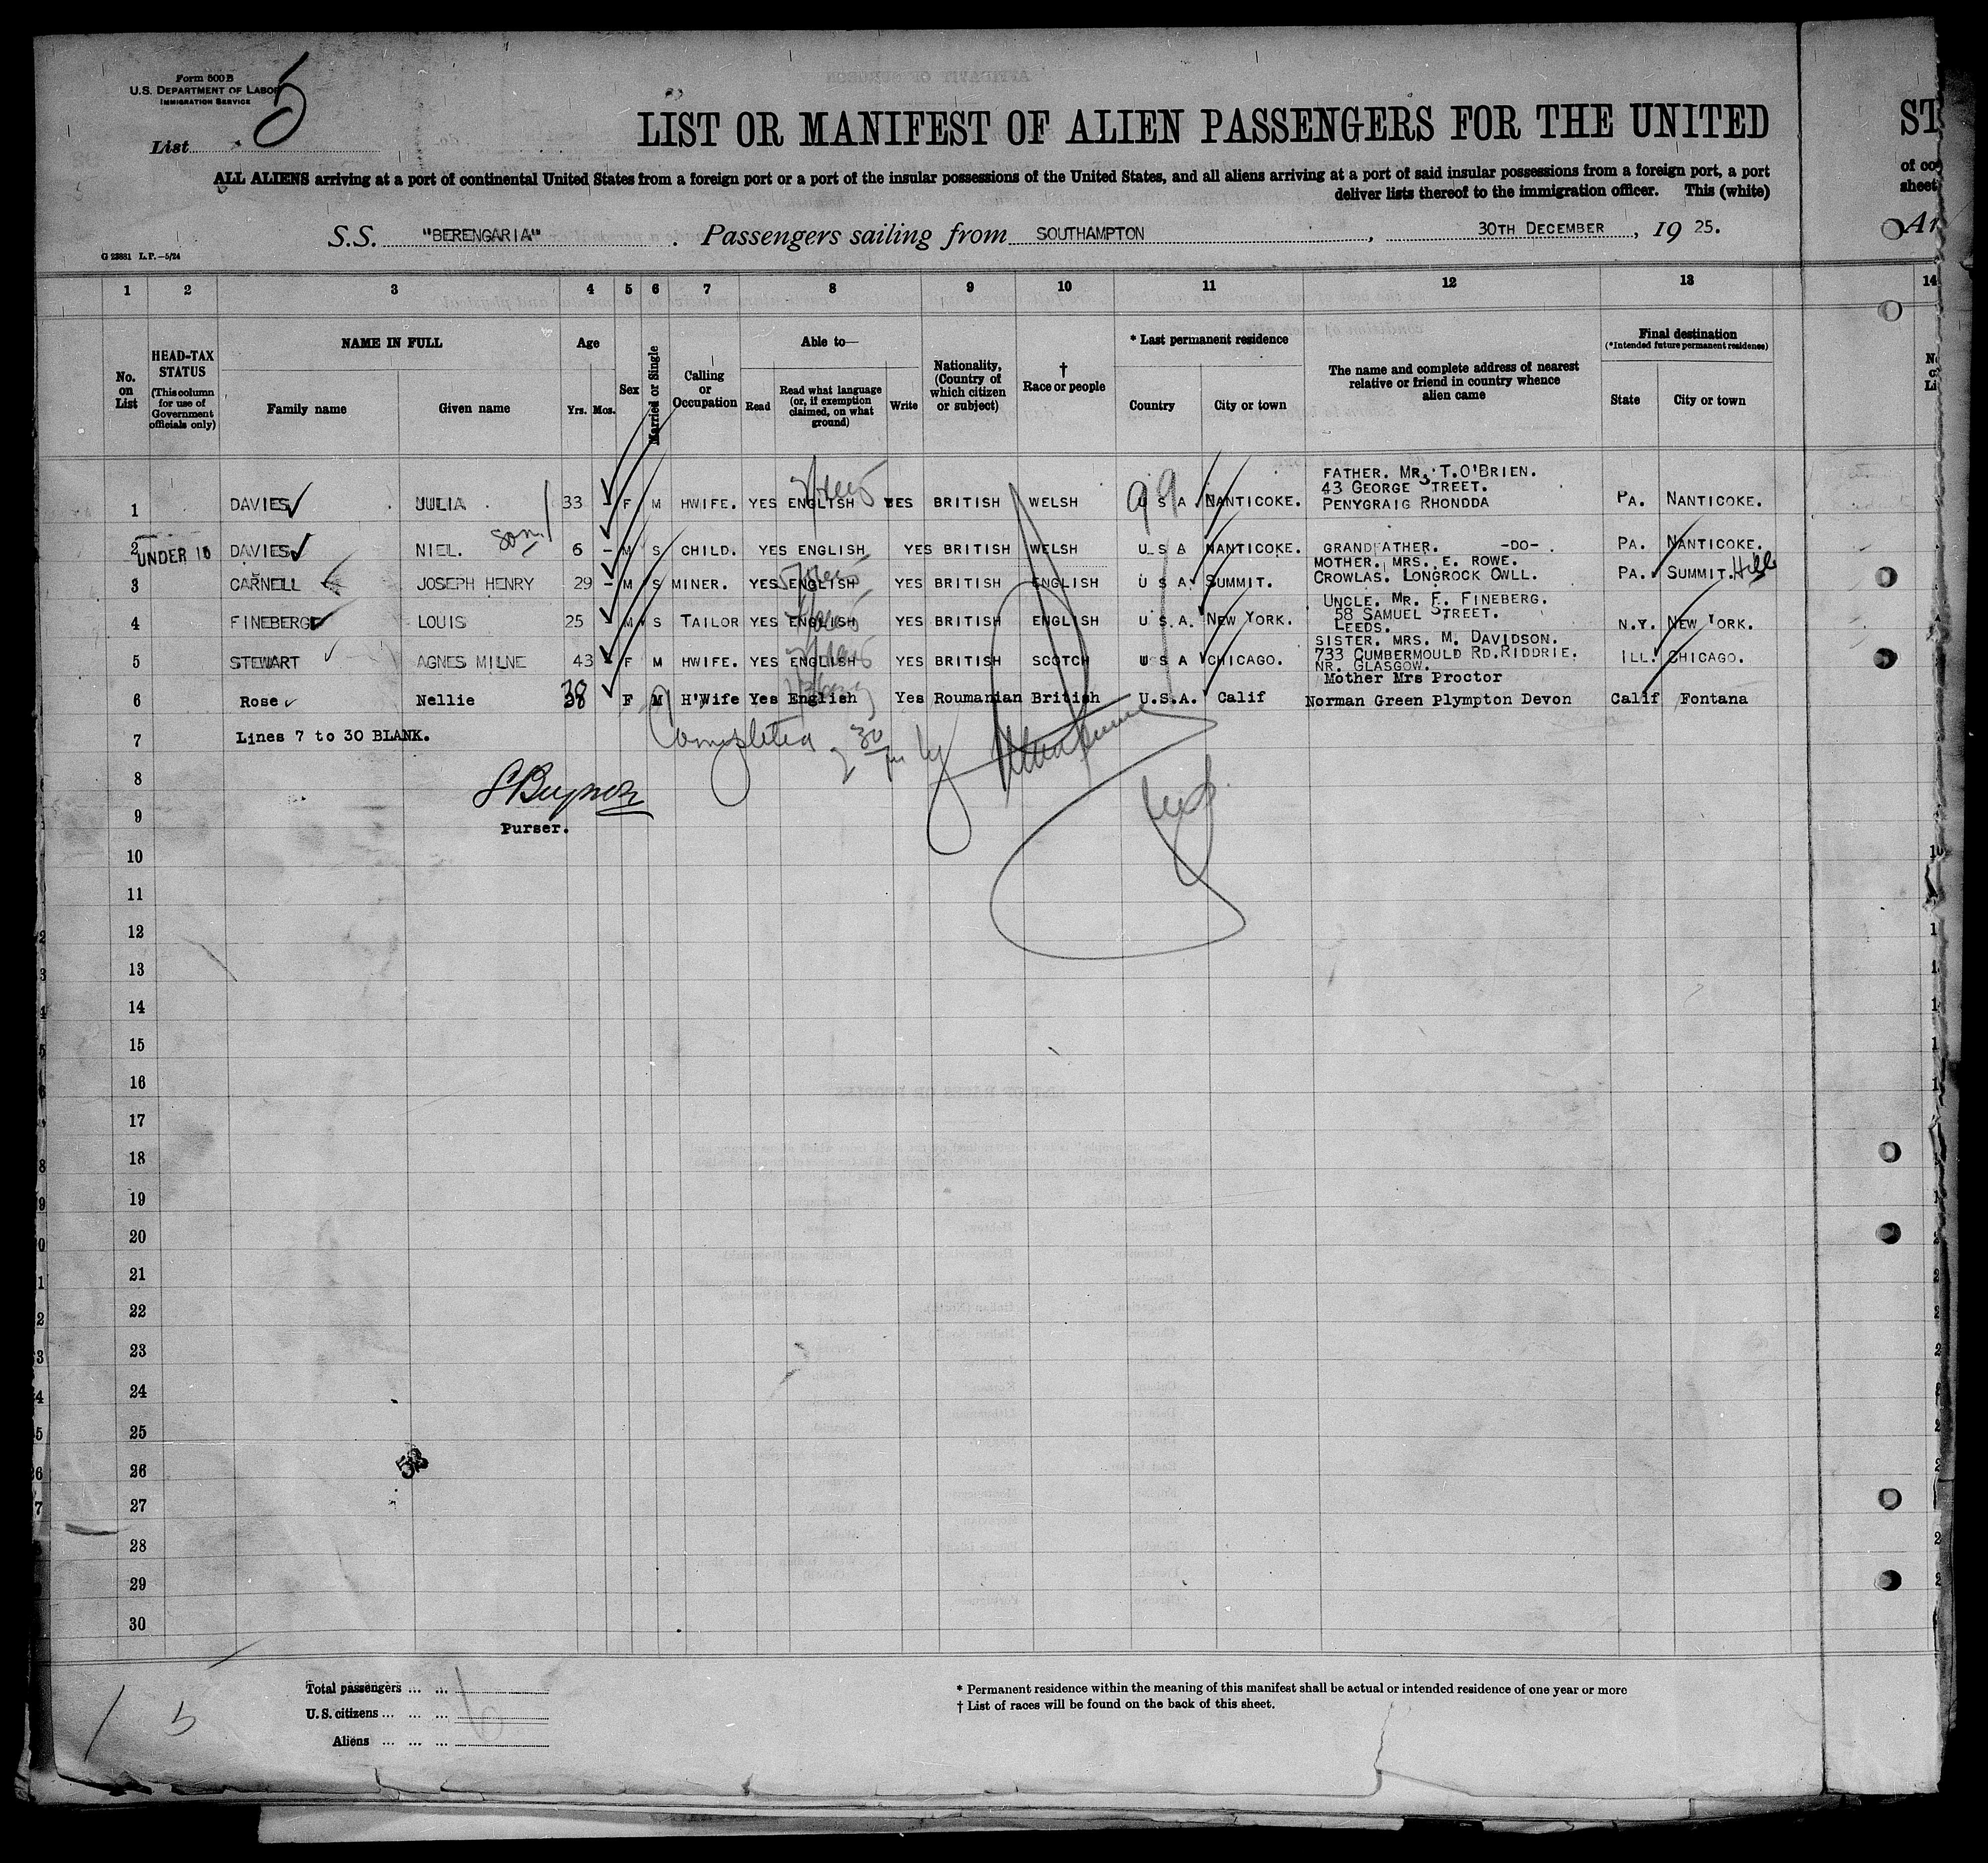 Form 500 B
U.S. DEPARTMENT OF LABOR
IMMIGRATION SERVICE
5
List
LIST OR MANIFEST OF ALIEN PASSENGERS FOR THE UNITED
ST
ALL ALIENS arriving at a port of continental United States from a foreign port or a port of the insular possessions of the United States, and all aliens arriving at a port of said insular possessions from a foreign port, a port
deliver lists thereof to the immigration officer. This (white)
of
sheet
S.S. "BERENGARIA" . Passengers sailing from SOUTHAMPTON , 30TH DECEMBER , 19 25.
G 23881 L.P.—5/24
1 2 3 4 5 6 7 8 9 10 11 12 13 14
No. on List
HEAD-TAX STATUS (This column for use of Government officials only)
NAME IN FULL
Family name Given name
Age
Yrs. Mos.
Sex
Married or Single
Calling or Occupation
Able to—
Read Read what language (or, if exemption claimed, on what ground) Write
Nationality, (Country of which citizen or subject)
† Race or people
* Last permanent residence
Country City or town
The name and complete address of nearest relative or friend in country whence alien came
Final destination
(*Intended future permanent residence)
State City or town
FATHER. MR. T.O'BRIEN.
43 GEORGE STREET.
1 DAVIES JULIA 33 - F M HWIFE. YES ENGLISH YES BRITISH WELSH U S A NANTICOKE. PENYGRAIG RHONDDA PA. NANTICOKE.
99
son
2 UNDER 16 DAVIES NIEL. 6 - M S CHILD. YES ENGLISH YES BRITISH WELSH U S A NANTICOKE. GRANDFATHER. -DO- PA. NANTICOKE.
MOTHER. MRS. E. ROWE.
3 CARNELL JOSEPH HENRY 29 - M S MINER. YES ENGLISH YES BRITISH ENGLISH U S A SUMMIT. CROWLAS. LONGROCK CWLL. PA. SUMMIT. Hill
UNCLE. MR. F. FINEBERG.
58 SAMUEL STREET.
4 FINEBERG LOUIS 25 - M S TAILOR YES ENGLISH YES BRITISH ENGLISH U.S.A. NEW YORK. LEEDS. N.Y. NEW YORK.
SISTER. MRS. M. DAVIDSON.
5 STEWART AGNES MILNE 43 - F M HWIFE. YES ENGLISH YES BRITISH SCOTCH U S A CHICAGO. 733 CUMBERMOULD RD.RIDDRIE. ILL. CHICAGO.
NR. GLASGOW.
Mother Mrs Proctor
6 Rose Nellie 38 F M H'Wife Yes English Yes Roumanian British U.S.A. Calif Norman Green Plympton Devon Calif Fontana
7 Lines 7 to 30 BLANK.
Completed by
8
9
Purser.
10
11
12
13
14
15
16
17
18
19
20
21
22
23
24
25
26
27
28
29
30
Total passengers ... ... 6
U.S. citizens ... ... ...
Aliens ... ... ...
* Permanent residence within the meaning of this manifest shall be actual or intended residence of one year or more
† List of races will be found on the back of this sheet.